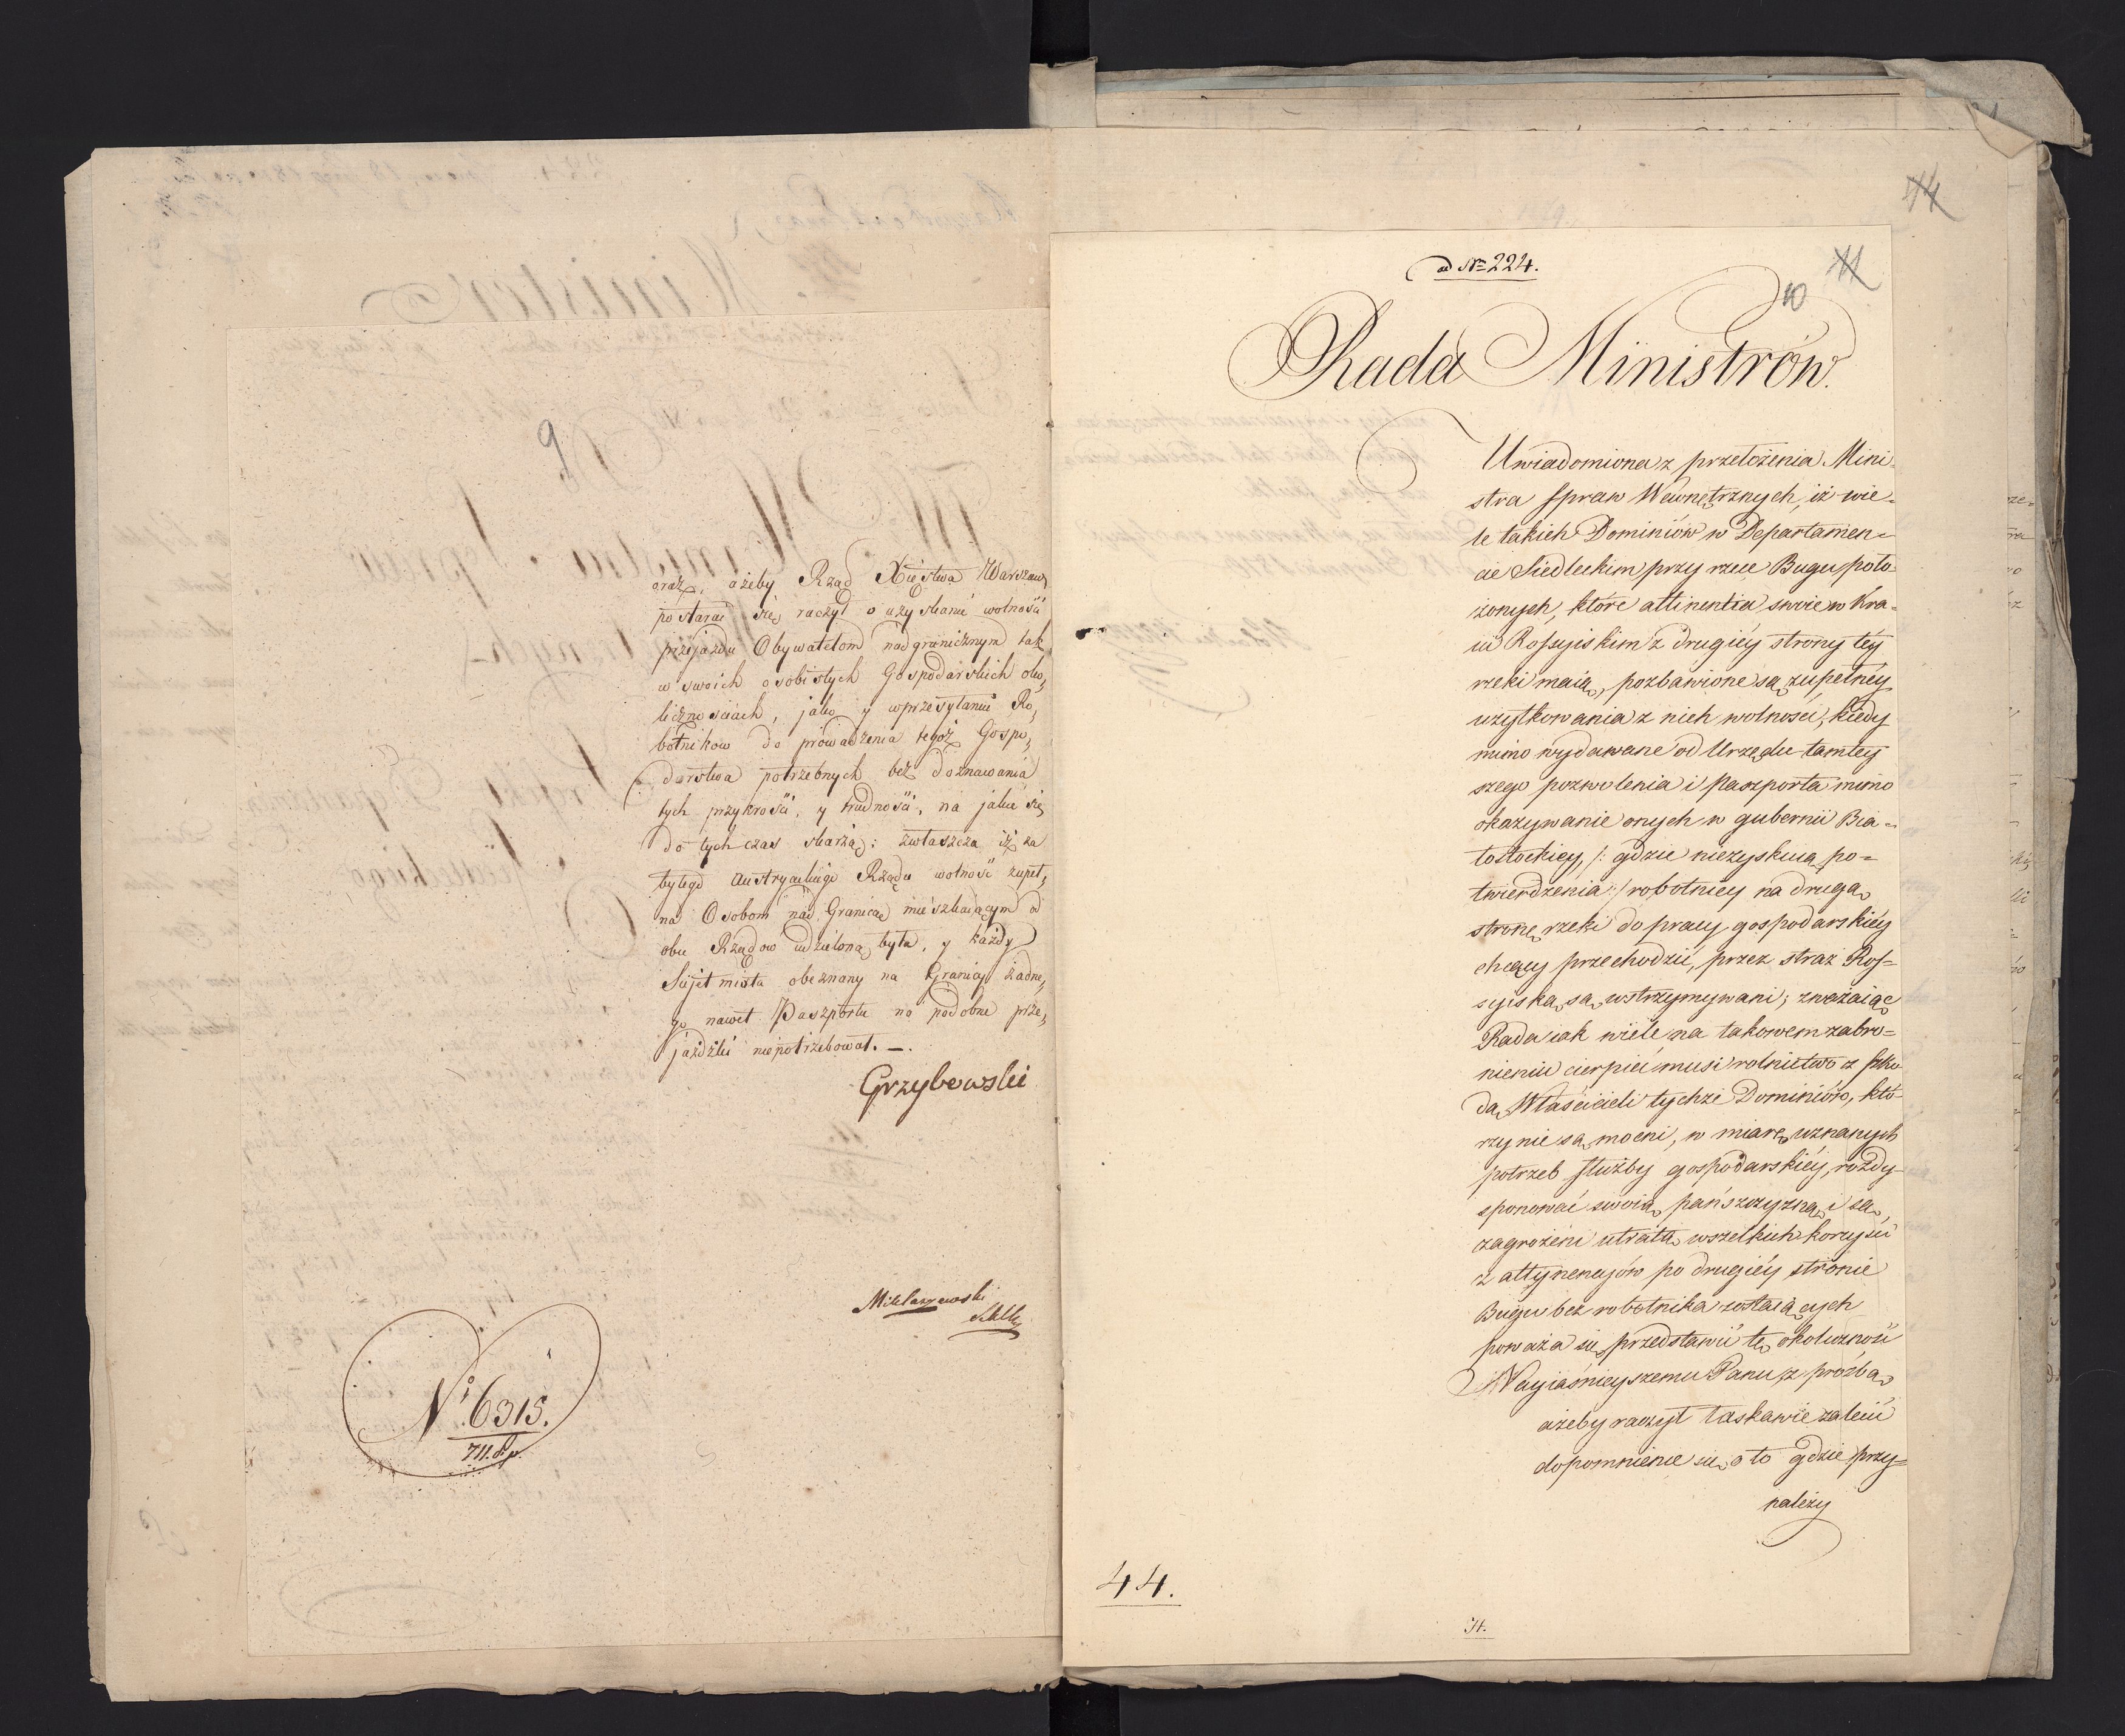 9
oraz, ażeby Rząd Xięstwa Warszaw,
postarać się raczył o uzyskanie wolność
przejazdu Obywatelom nadgranicznym tak
w swoich osobistych Gospodarskich oko,
licznościach, jako y w przesyłaniu Ro,
botnikow do prowadzenia tegoż Gospo,
darstwa potrzebnych bez doznawania
tych przykrość, y trudność, na jakie się
do tych czas skarżą: zwłaszcza iż za
byłego Austryackiego Rządu wolność zupeł,
na Osobom nad Granicą mieszkaiącym od
obu Rządow udzieloną była, y każdy
Sujet miasta obeznany na Granicy żadne,
go nawet Paszportu na podobne prze,
jażdżki niepotrzebował. —.
Grzybowski
Miklaszewski
N. 6315.
711. dp.
ad No 224.
44
11
10
Rada Ministrów.
Uwiadomiona z przełożenia Mini-
stra Spraw Wewnętrznych, iż wie-
le takich Dominiów w Departamen-
cie Siedleckim przy rzece Bugu poło-
żonych, które attinentia swoie w Kra-
iu Rossyiskim z drugiéy strony téy
rzeki maią, pozbawione są zupełnéy
użytkowania z nich wolności, kiedy
mimo wydawane od Urzędu tamtey
szego pozwolenia i Paszporta mimo
okazywanie onych w gubernii Bia-
łostockiey, /: gdzie niezyskuią po-
twierdzenia :/ robotnicy na drugą
stronę rzeki do pracy gospodarskiéy
chcący przechodzić, przez straż Ros-
syiską są wstrzymywani; zważaiąc
Rada iak wiele na takowem zabro-
nieniu cierpieć musi rolnictwo z szko
dą Właścicieli tychże Dominiów, któ-
rzy nie są mocni, w miarę uznanych
potrzeb służby gospodarskiéy, rozdy-
sponować swoią pańszczyzną i są,
zagrożeni utratą wszelkich korzyści
z attynencyów po drugiéy stronie
Bugu bez robotnika zostaiących
poważa się przedstawić tę okoliczność
Nayiaśnieyszemu Panu, z proźbą
ażeby raczył łaskawie zalecić
dopomnienie się o to gdzie przy-
należy
44.